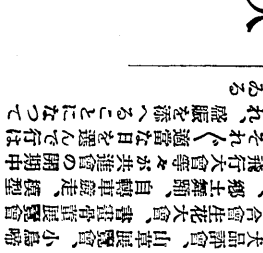 犬品評會、山草展覽會、小鳥啼
合會生花大會、書畫骨董展覽會
、郷土舞踊、自轉車競走、模型
飛行大會等々が共進會の開期中
それ〴〵適當な日を選んで行は
れ、盛賑を添へることになつて
ゐる